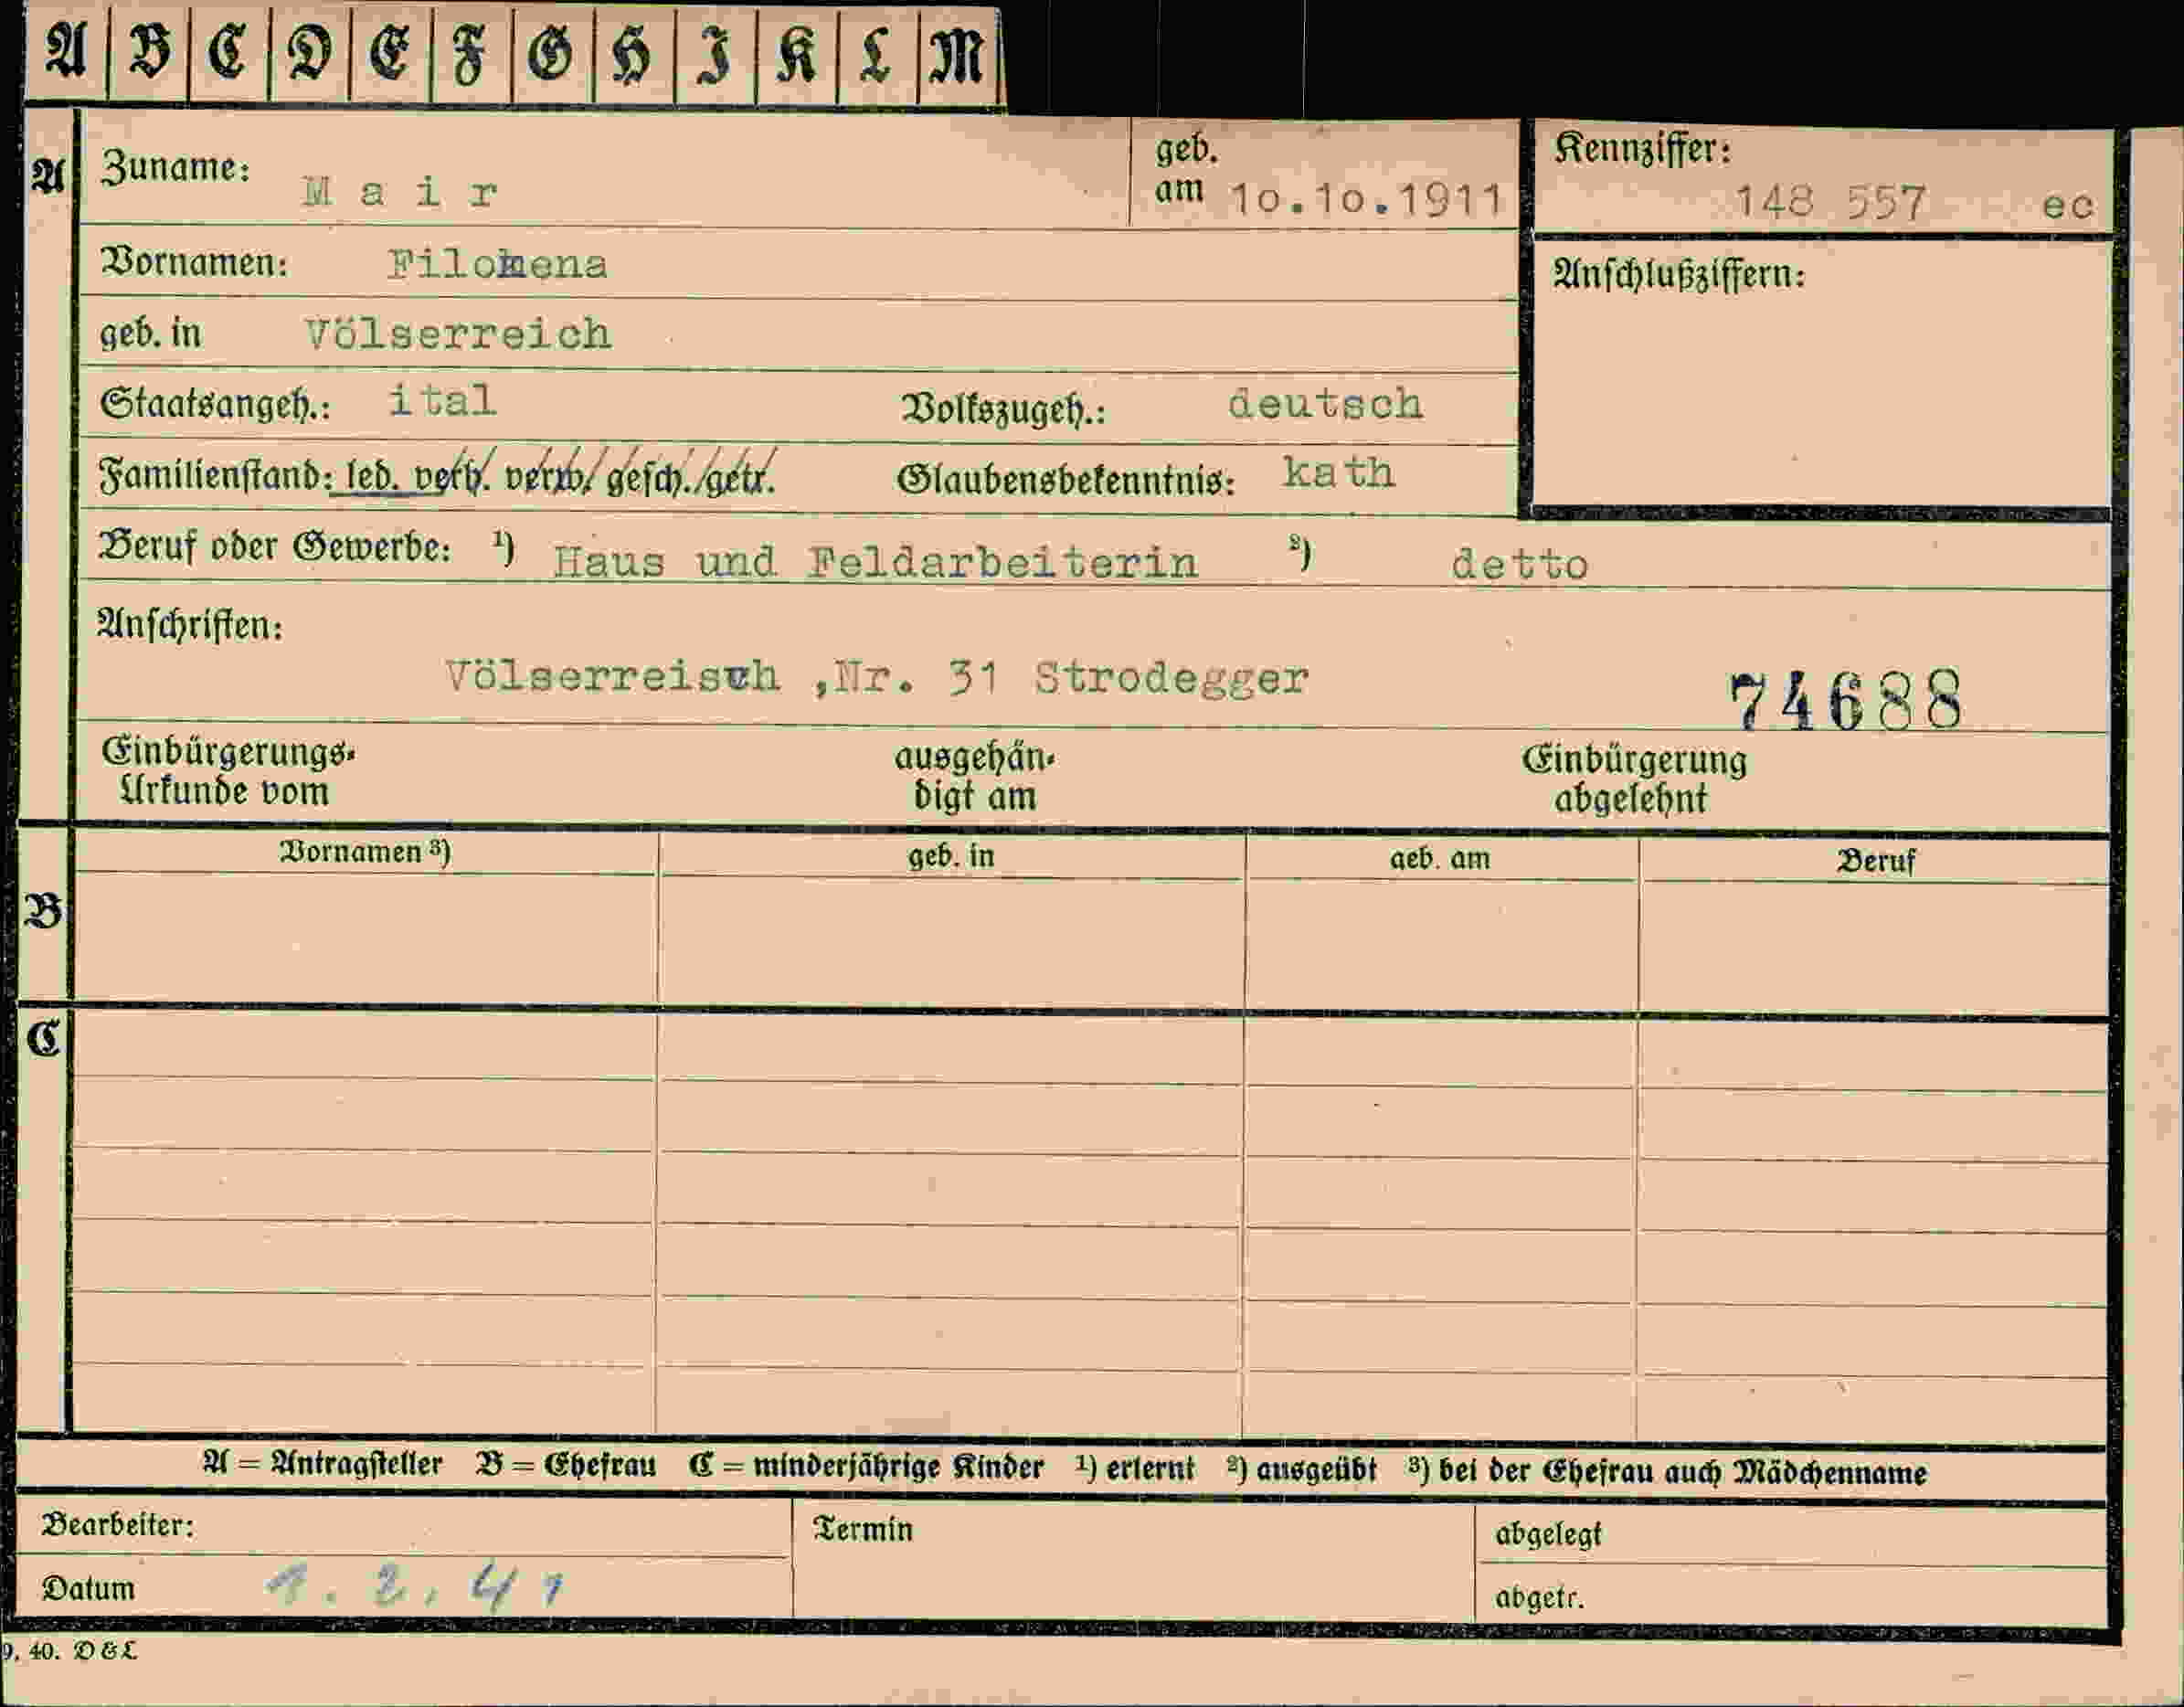 A B C D E F G H I K L M
A
Zuname: Mair
geb. am 10.10.1911
Kennziffer: 148 557 ec
Vornamen: Filomena
Anschlußziffern:
geb. in Völserreich
Staatsangeh.: ital Volkszugeh.: deutsch
Familienstand: led. verh. verw. gesch. getr. Glaubensbekenntnis: kath
Beruf oder Gewerbe: ¹) Haus und Feldarbeiterin ²) detto
Anschriften:
Völserreisch ,Nr. 31 Strodegger
74688
Einbürgerungs-
Urkunde vom
ausgehän-
digt am
Einbürgerung
abgelehnt
B
Vornamen ³) geb. in geb. am Beruf
C
A = Antragsteller B = Ehefrau C = minderjährige Kinder ¹) erlernt ²) ausgeübt ³) bei der Ehefrau auch Mädchenname
Bearbeiter:
Datum 1.2.41
Termin
abgelegt
abgetr.
9. 40. D & L